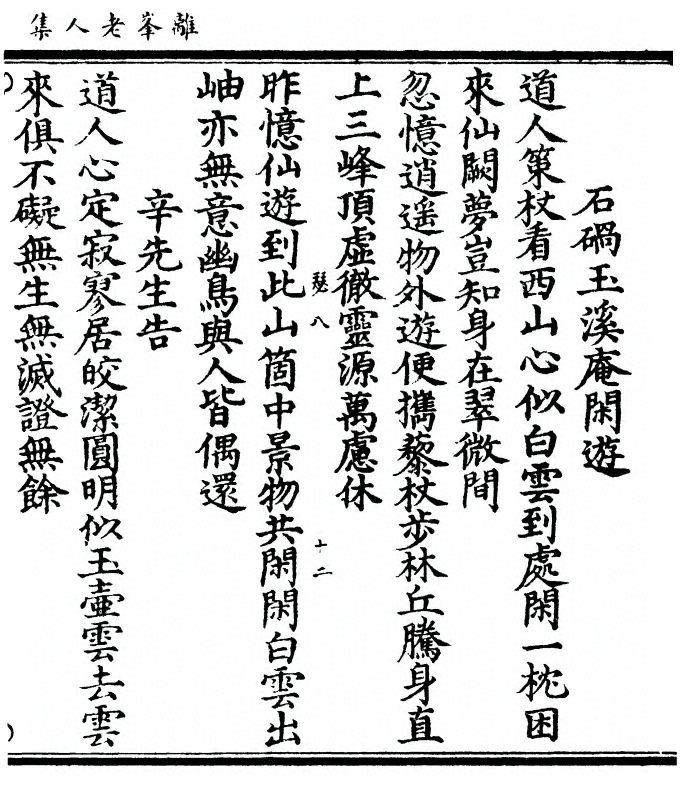 離峯老人集
石碢玉溪庵閑遊
道人策杖看西山心似白雲到處閑一枕困
來仙闕夢豈知身在翠微間
忽憶逍遥物外遊便擕藜杖步林丘騰身直
上三峰頂虛徹靈源萬慮休
瑟八
十二
昨憶仙遊到此山箇中景物共閑閑白雲出
岫亦無意幽鳥與人皆偶還
辛先生告
道人心定寂寥居皎潔圓明似玉壷雲去雲
來俱不礙無生無滅證無餘